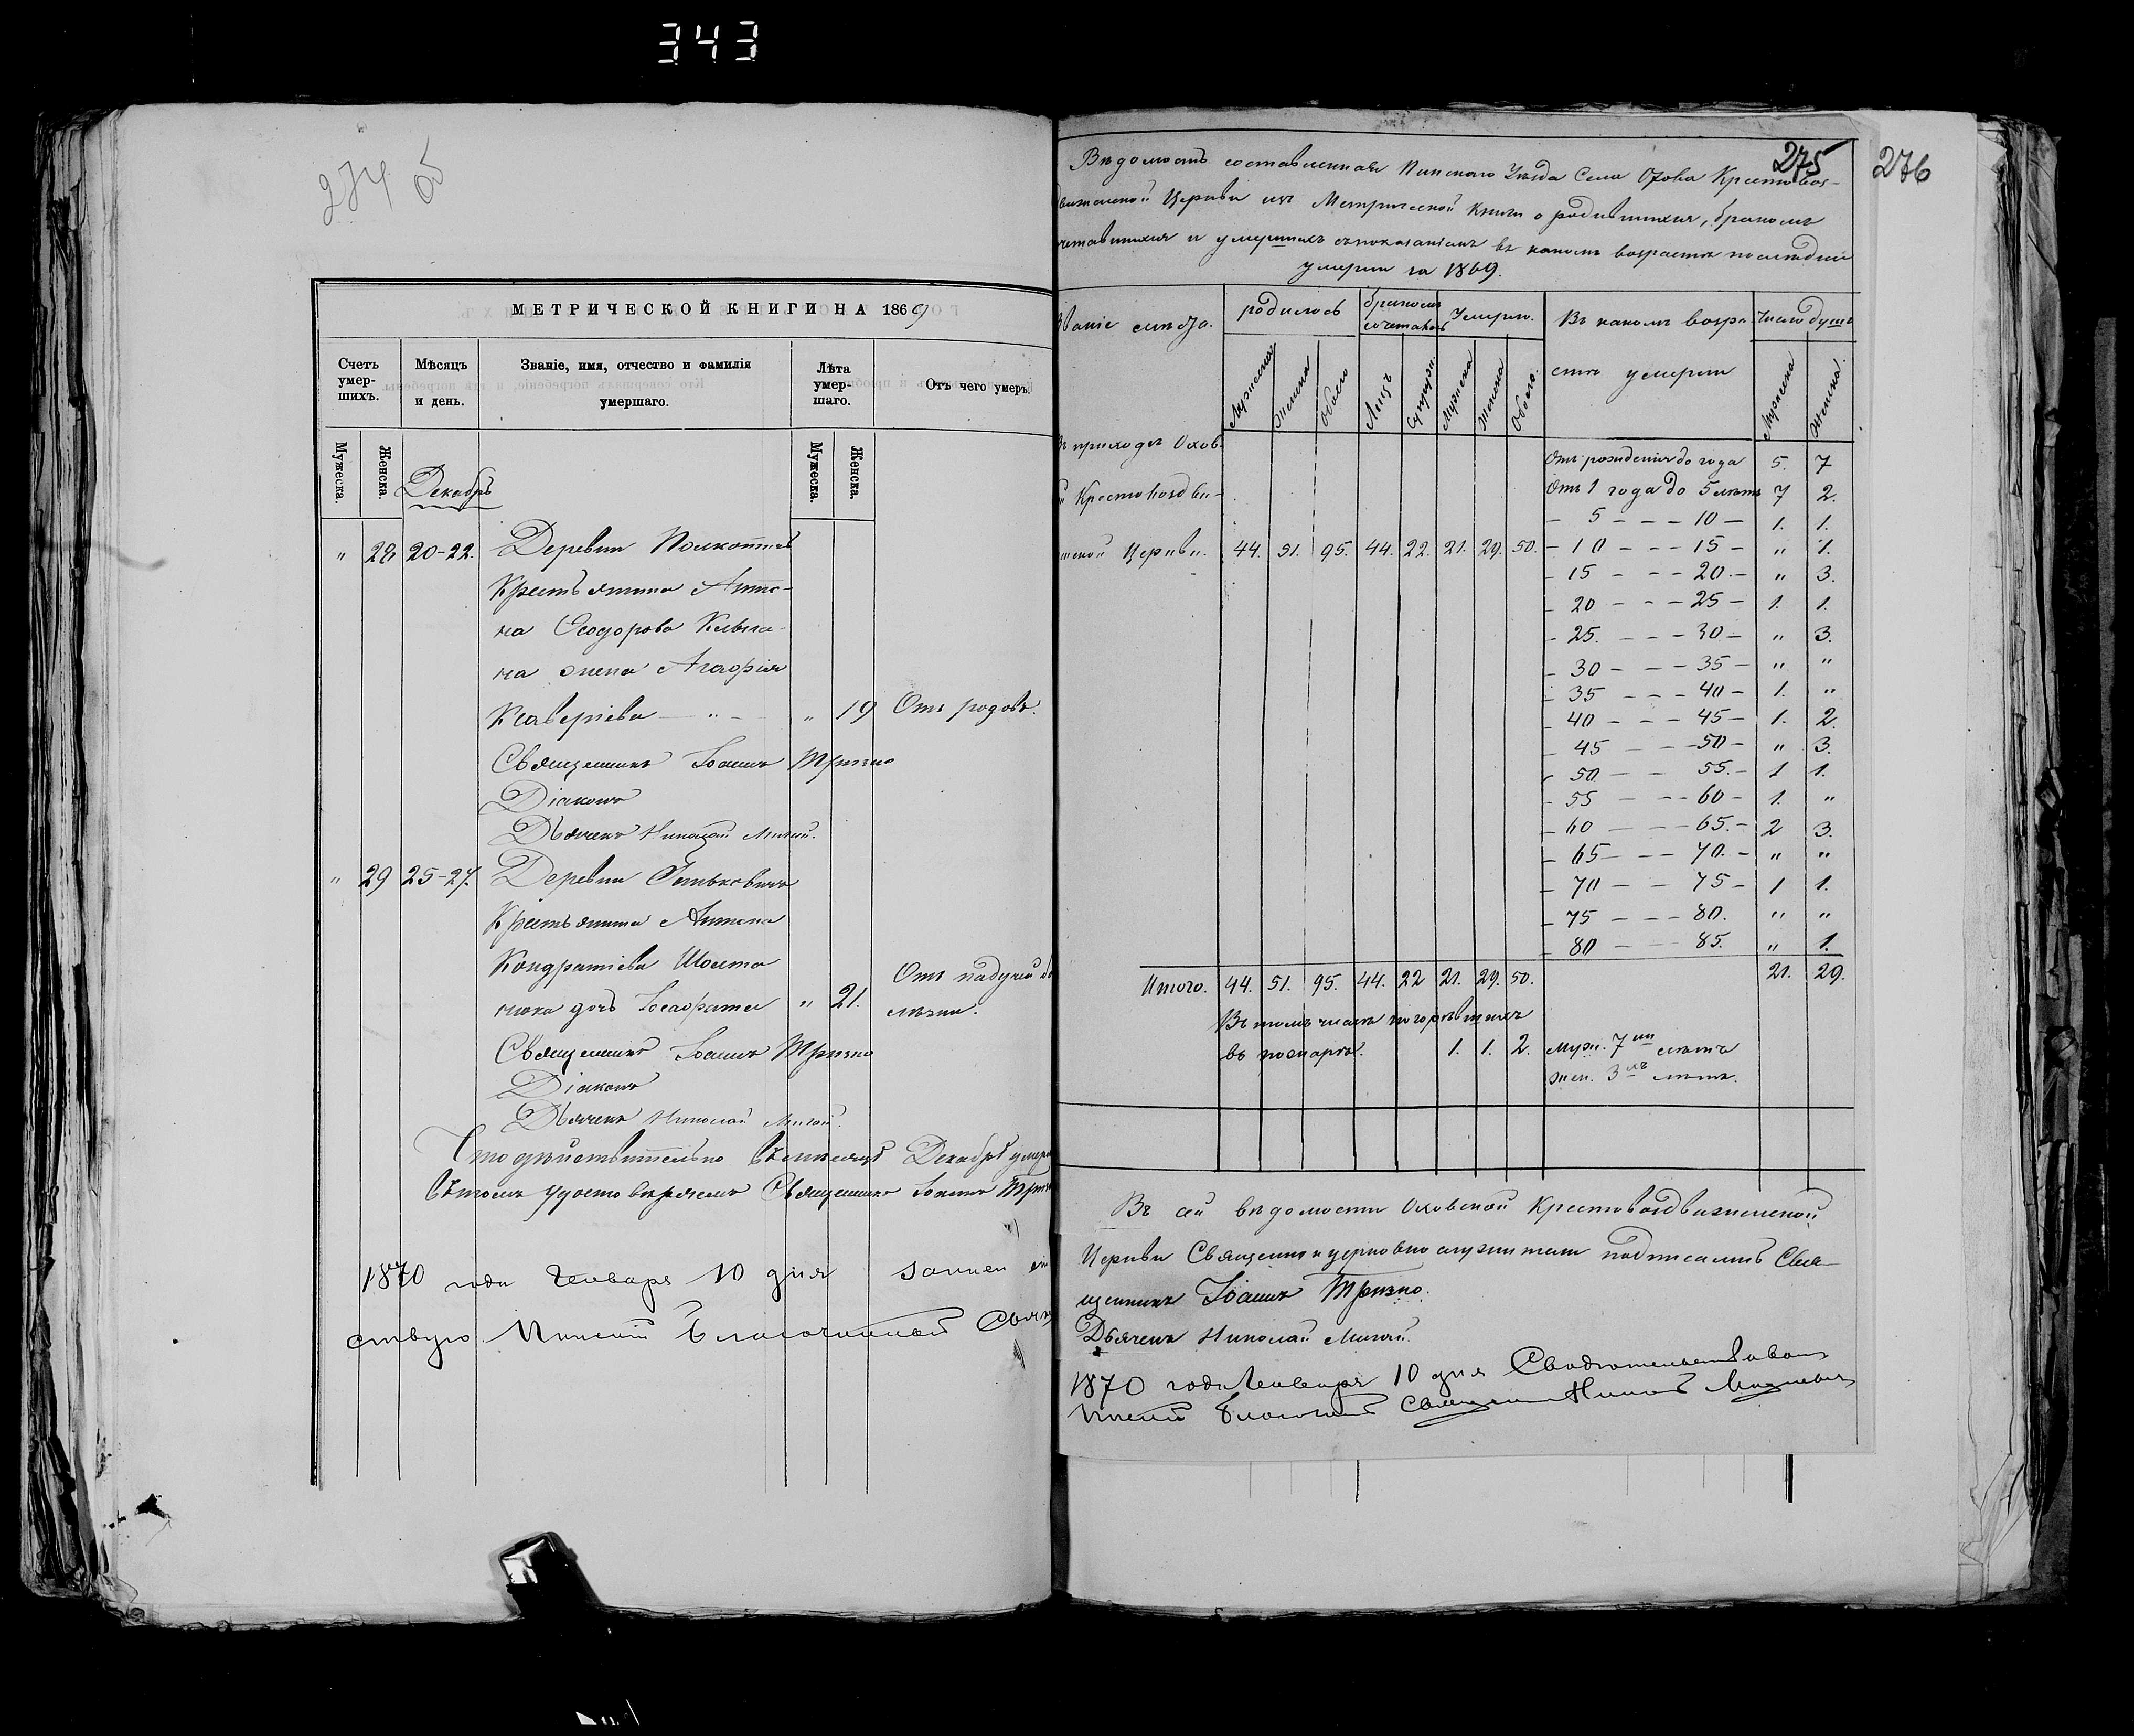 343
274 об
МЕТРИЧЕСКОЙ КНИГИ НА 1869
Счетъ умер-шихъ.
Мѣсяцъ и день.
Званіе, имя, отчество и фамилія умершаго.
Лѣта умер-шаго.
Отъ чего умеръ
Мужеска.
Женска.
Мужеска.
Женска.
Декабрь
" 28 20-22. Деревни
Крестьянина Анто-
на Ѳеодорова
на жена Агафія
Ксаверіева " 19 Отъ родовъ.
Священникъ Іоаннъ Тризно
Діаконъ
Дьячекъ Николай
" 29 25-27. Деревни
Крестьянина Антона
Кондратіева
дочь " 21. Отъ падучей
Священникъ Іоаннъ Тризно
Діаконъ
Дьячекъ Николай
Что дѣйствительно въ мѣсяцѣ Декабрѣ
въ томъ удостовѣряемъ Священникъ Іоаннъ
1870 года Генваря 10 дня
Пинскій Благочинный
275
276
Вѣдомость составленная Пинскаго Уѣзда Села Охова Крестовоз-
Церкви изъ Метрической книги о родившихся, бракомъ
и умершихъ съ показаніемъ въ какомъ возрастѣ послѣдніе
умерли за 1869.
Званіе мѣста.
родилось
бракомъ сочеталось
Умерло.
Въ какомъ возра-
стѣ умерли
Число душъ
Мужеска
Женска
Обоего
Лицъ
Супруж.
Мужеска
Женска
Обоего.
Мужеска
Женска.
въ приходѣ Охов
Крестовоздви-
Церкви. 44. 51. 95. 44. 22. 21. 29. 50.
Отъ рожденія до года 5. 7
Отъ 1 года до 5 лѣтъ 7 2.
- 5 - - - 10 - 1. 1.
- 10 - - - 15 - " 1.
- 15 - - - 20. - " 3.
- 20 - - - 25 - 1. 1.
- 25. - - - 30 - " 3.
- 30 - - - 35 - " "
- 35 - - - 40 - 1. "
- 40 - - - 45 - 1. 2.
- 45 - - - 50 - " 3.
- 50 - - 55. - 1 1.
- 55 - - - 60 - 1. "
- 60 - - - 65. - 2 3.
- 65 - - - 70. - " "
- 70 - - 75 - 1 1.
- 75 - - - 80. " "
- 80 - - 85. " 1.
Итого. 44. 51. 95. 44. 22 21. 29. 50. 21. 29.
Въ томъ числѣ погорѣвшихъ
въ пожарѣ. 1. 1. 2. Муж. 7ми лѣтъ
жен. 3хъ лѣтъ.
Въ сей вѣдомости Оховской Крестовоздвиженской
Церкви Священно и церковно служители подписались Свя-
щенникъ Іоаннъ Тризно.
Дьячекъ Николай
1870 года Генваря 10 дня Свидѣтельствовалъ
Пинскій Благочинный